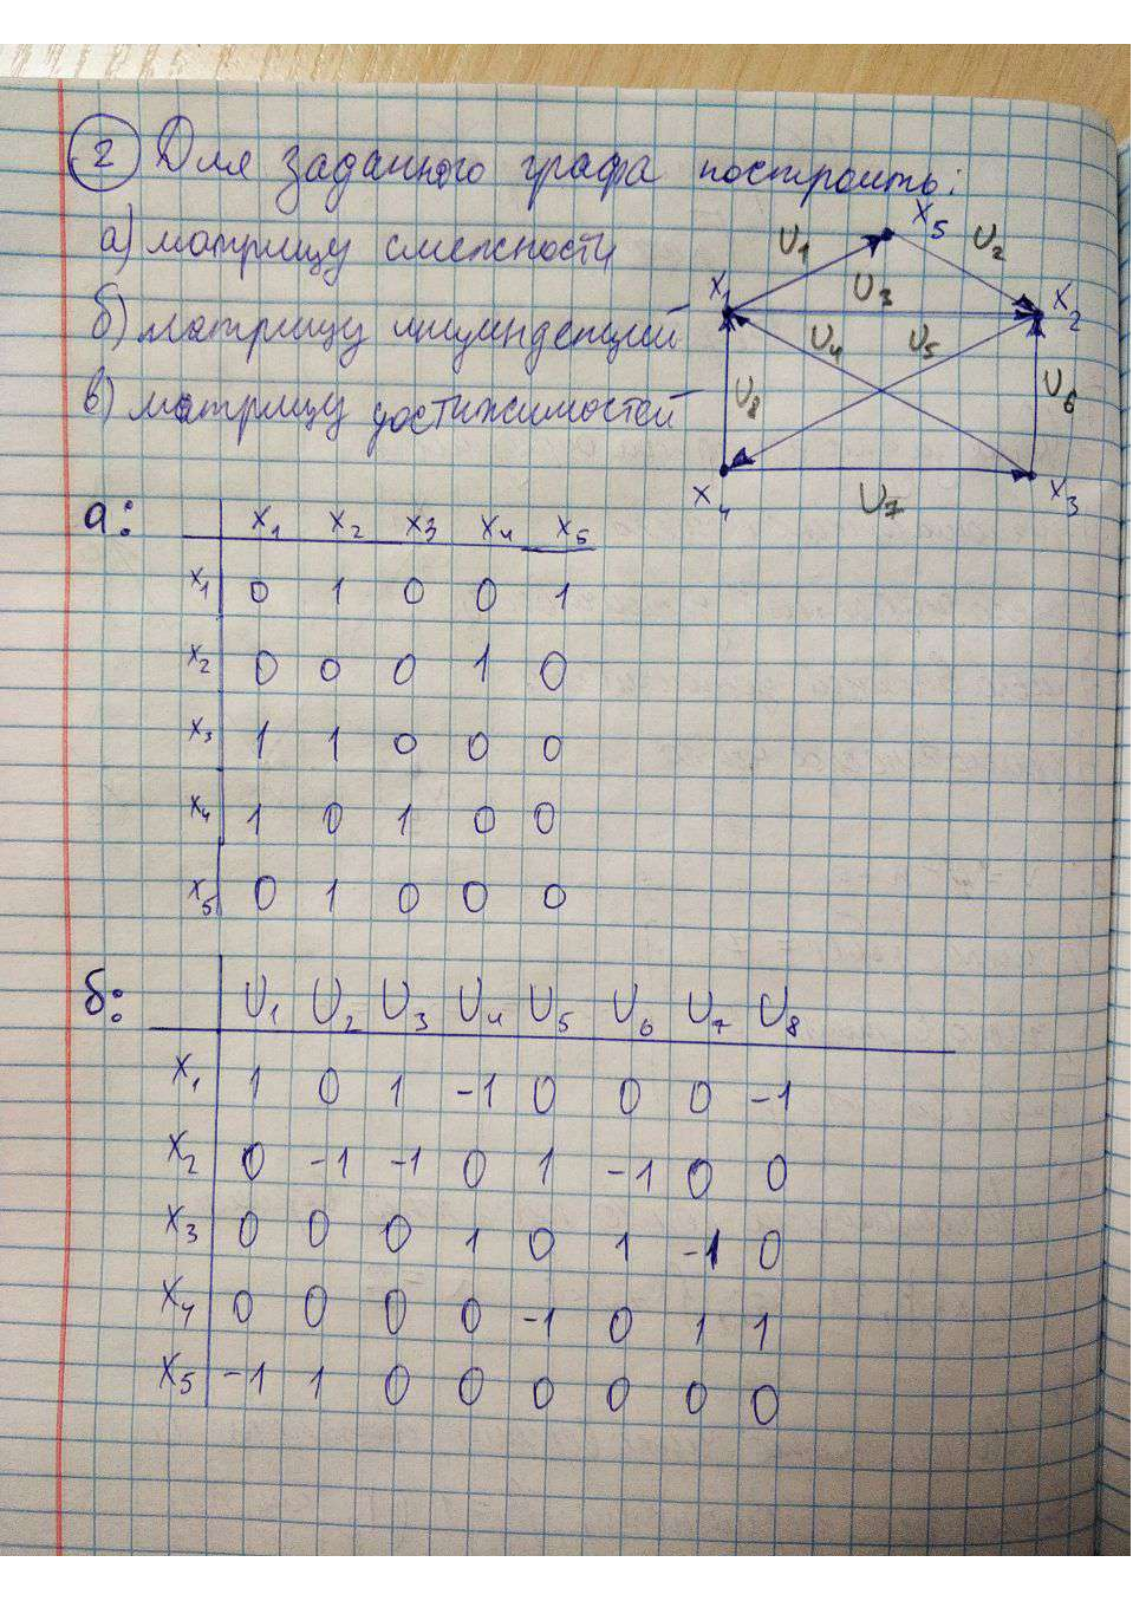 2 Для заданного графа построить:
а) матрицу смежности
б) матрицу инцинденций
в) матрицу достижимостей
x5
U1
U2
x1
U3
x2
U4
U5
U8
U6
x4
U7
x3
а:
x1 x2 x3 x4 x5
x1 0 1 0 0 1
x2 0 0 0 1 0
x3 1 1 0 0 0
x4 1 0 1 0 0
x5 0 1 0 0 0
б:
U1 U2 U3 U4 U5 U6 U7 U8
x1 1 0 1 -1 0 0 0 -1
x2 0 -1 -1 0 1 -1 0 0
x3 0 0 0 1 0 1 -1 0
x4 0 0 0 0 -1 0 1 1
x5 -1 1 0 0 0 0 0 0